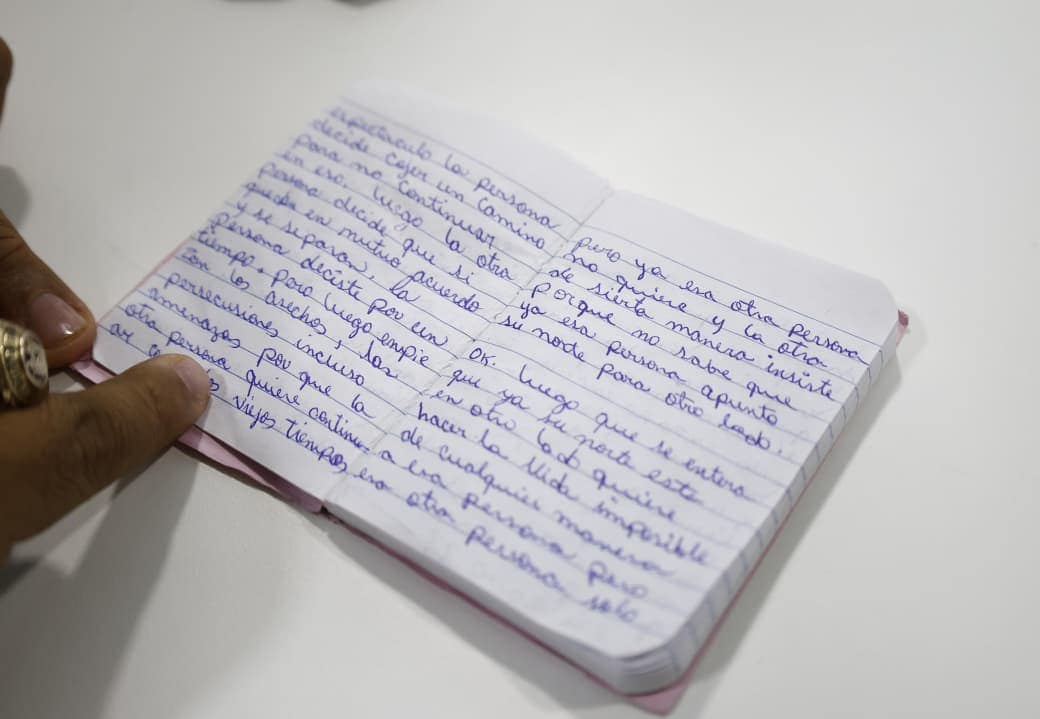 espectaculo la persona
decide cojer un camino
para no continuar
en eso. luego la otra
persona decide que si
queda en mutuo acuerdo
y se separan, la
persona deciste por un
tiempo. pero luego empie
zan los asechos, las
persecusiones incluso
amenazas por que la
otra persona quiere continu
ar viejos tiempos
pero ya esa otra persona
no quiere y la otra
de sierta manera insiste
porque no sabe que
ya esa persona apunto
su norte para otro lado.
OK. luego que se entera
que ya su norte esta
en otro lado quiere
hacer la vida imposible
de cualquier manera
a esa persona pero
esa otra persona solo